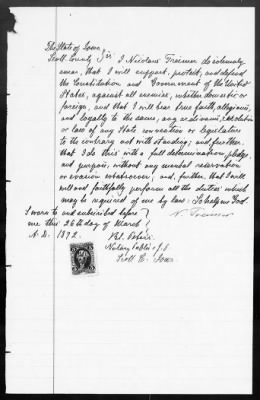 The State of Iowa,
Scott County SS. I Nicolaus Fremmer do solemnly
swear, that I will support, protect, and defend
the Constitution and Government of the United
States, against all enemies, whether domestic or
foreign, and that I will bear true faith, allegiance,
and loyalty to the same, any ordinance, resolution
or law of any State convention or legislature
to the contrary notwithstanding; and further,
that I do this with a full determination, pledge,
and purpose, without any mental reservation
or evasion whatsoever; and, further, that I will
well and faithfully perform all the duties which
may be required of me by law. So help me God.
Sworn to and subscribed before
me this 26th day of March
A. D. 1872.
Notary Public S.
Scott Co. Iowa.